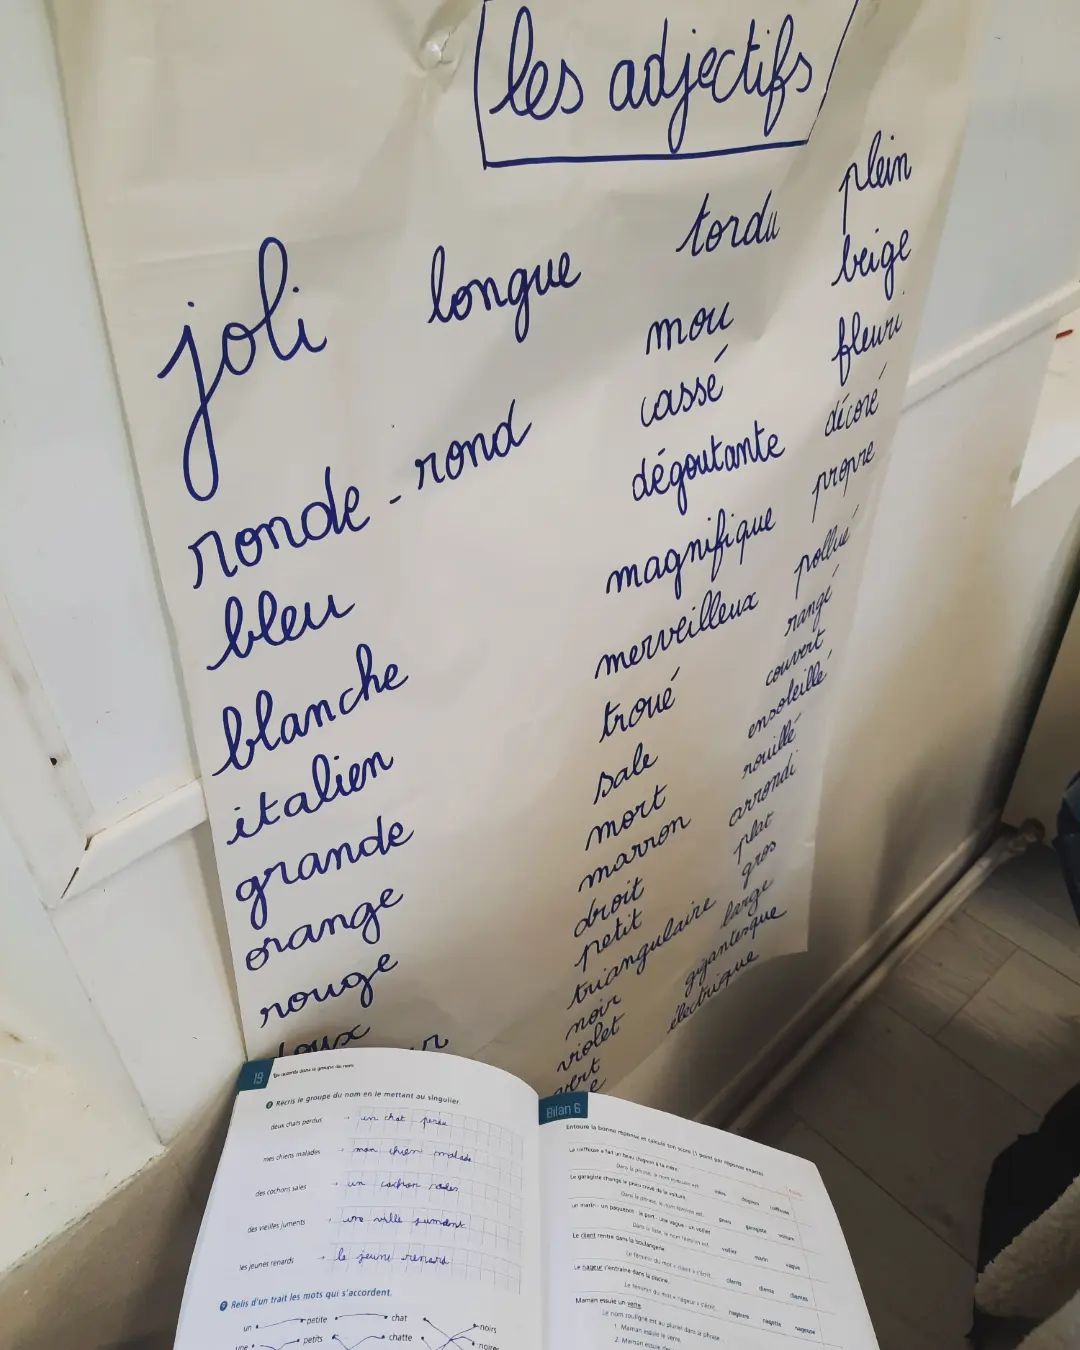 les adjectifs
joli
ronde - rond
bleu
blanche
italien
grande
orange
rouge
doux
longue
tordu
mou
cassé
dégoutante
magnifique
merveilleux
troué
sale
mort
marron
droit
petit
triangulaire
noir
violet
vert
plein
beige
fleuri
décoré
propre
pollué
rangé
couvert
ensoleillé
rouillé
arrondi
plat
gros
large
gigantesque
électrique
19
Récris le groupe du nom en le mettant au singulier.
deux chats perdus → un chat perdu
mes chiens malades → mon chien malade
des cochons sales → un cochon
des vieilles juments →
les jeunes renards → le jeune renard
Relis d'un trait les mots qui s'accordent.
un petite chat noirs
une petits chatte noires
Bilan 6
Entoure la bonne réponse et calcule ton score (1 point par réponse exacte).
Le garagiste change le pneu crevé de la voiture.
pneu garagiste voiture
un marin - un paquebot - le port - une vague - un voilier
voilier marin vague
Le client rentre dans la boulangerie.
Le féminin du mot « client » s'écrit
clients clienta clientes
Le nageur s'entraîne dans la piscine.
Le féminin du mot « nageur » s'écrit
nageuse
Maman essuie un verre.
Le nom souligné est au pluriel dans la phrase
1. Maman essuie le verre.
2. Maman essuie